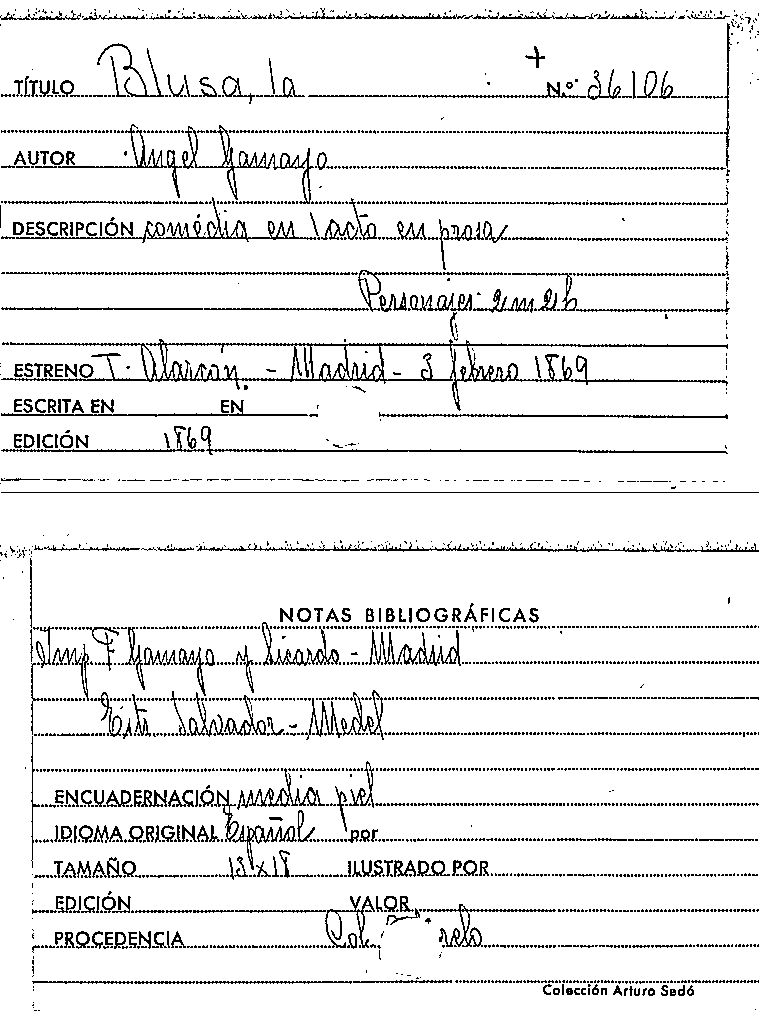 TÍTULO Blusa, la + N.º 36106
AUTOR Angel Gamayo
DESCRIPCIÓN comédia en 1 acto en prosa
Personajes 2m 2h
ESTRENO T. Alarcón. - Madrid - 3 febrero 1869
ESCRITA EN EN
EDICIÓN 1869
NOTAS BIBLIOGRÁFICAS
Imp F Gamayo y Sicardo - Madrid
Salvador - Medel
ENCUADERNACIÓN media piel
IDIOMA ORIGINAL Español por
TAMAÑO 13x18 ILUSTRADO POR
EDICIÓN VALOR
PROCEDENCIA Col.
Colección Arturo Sedó